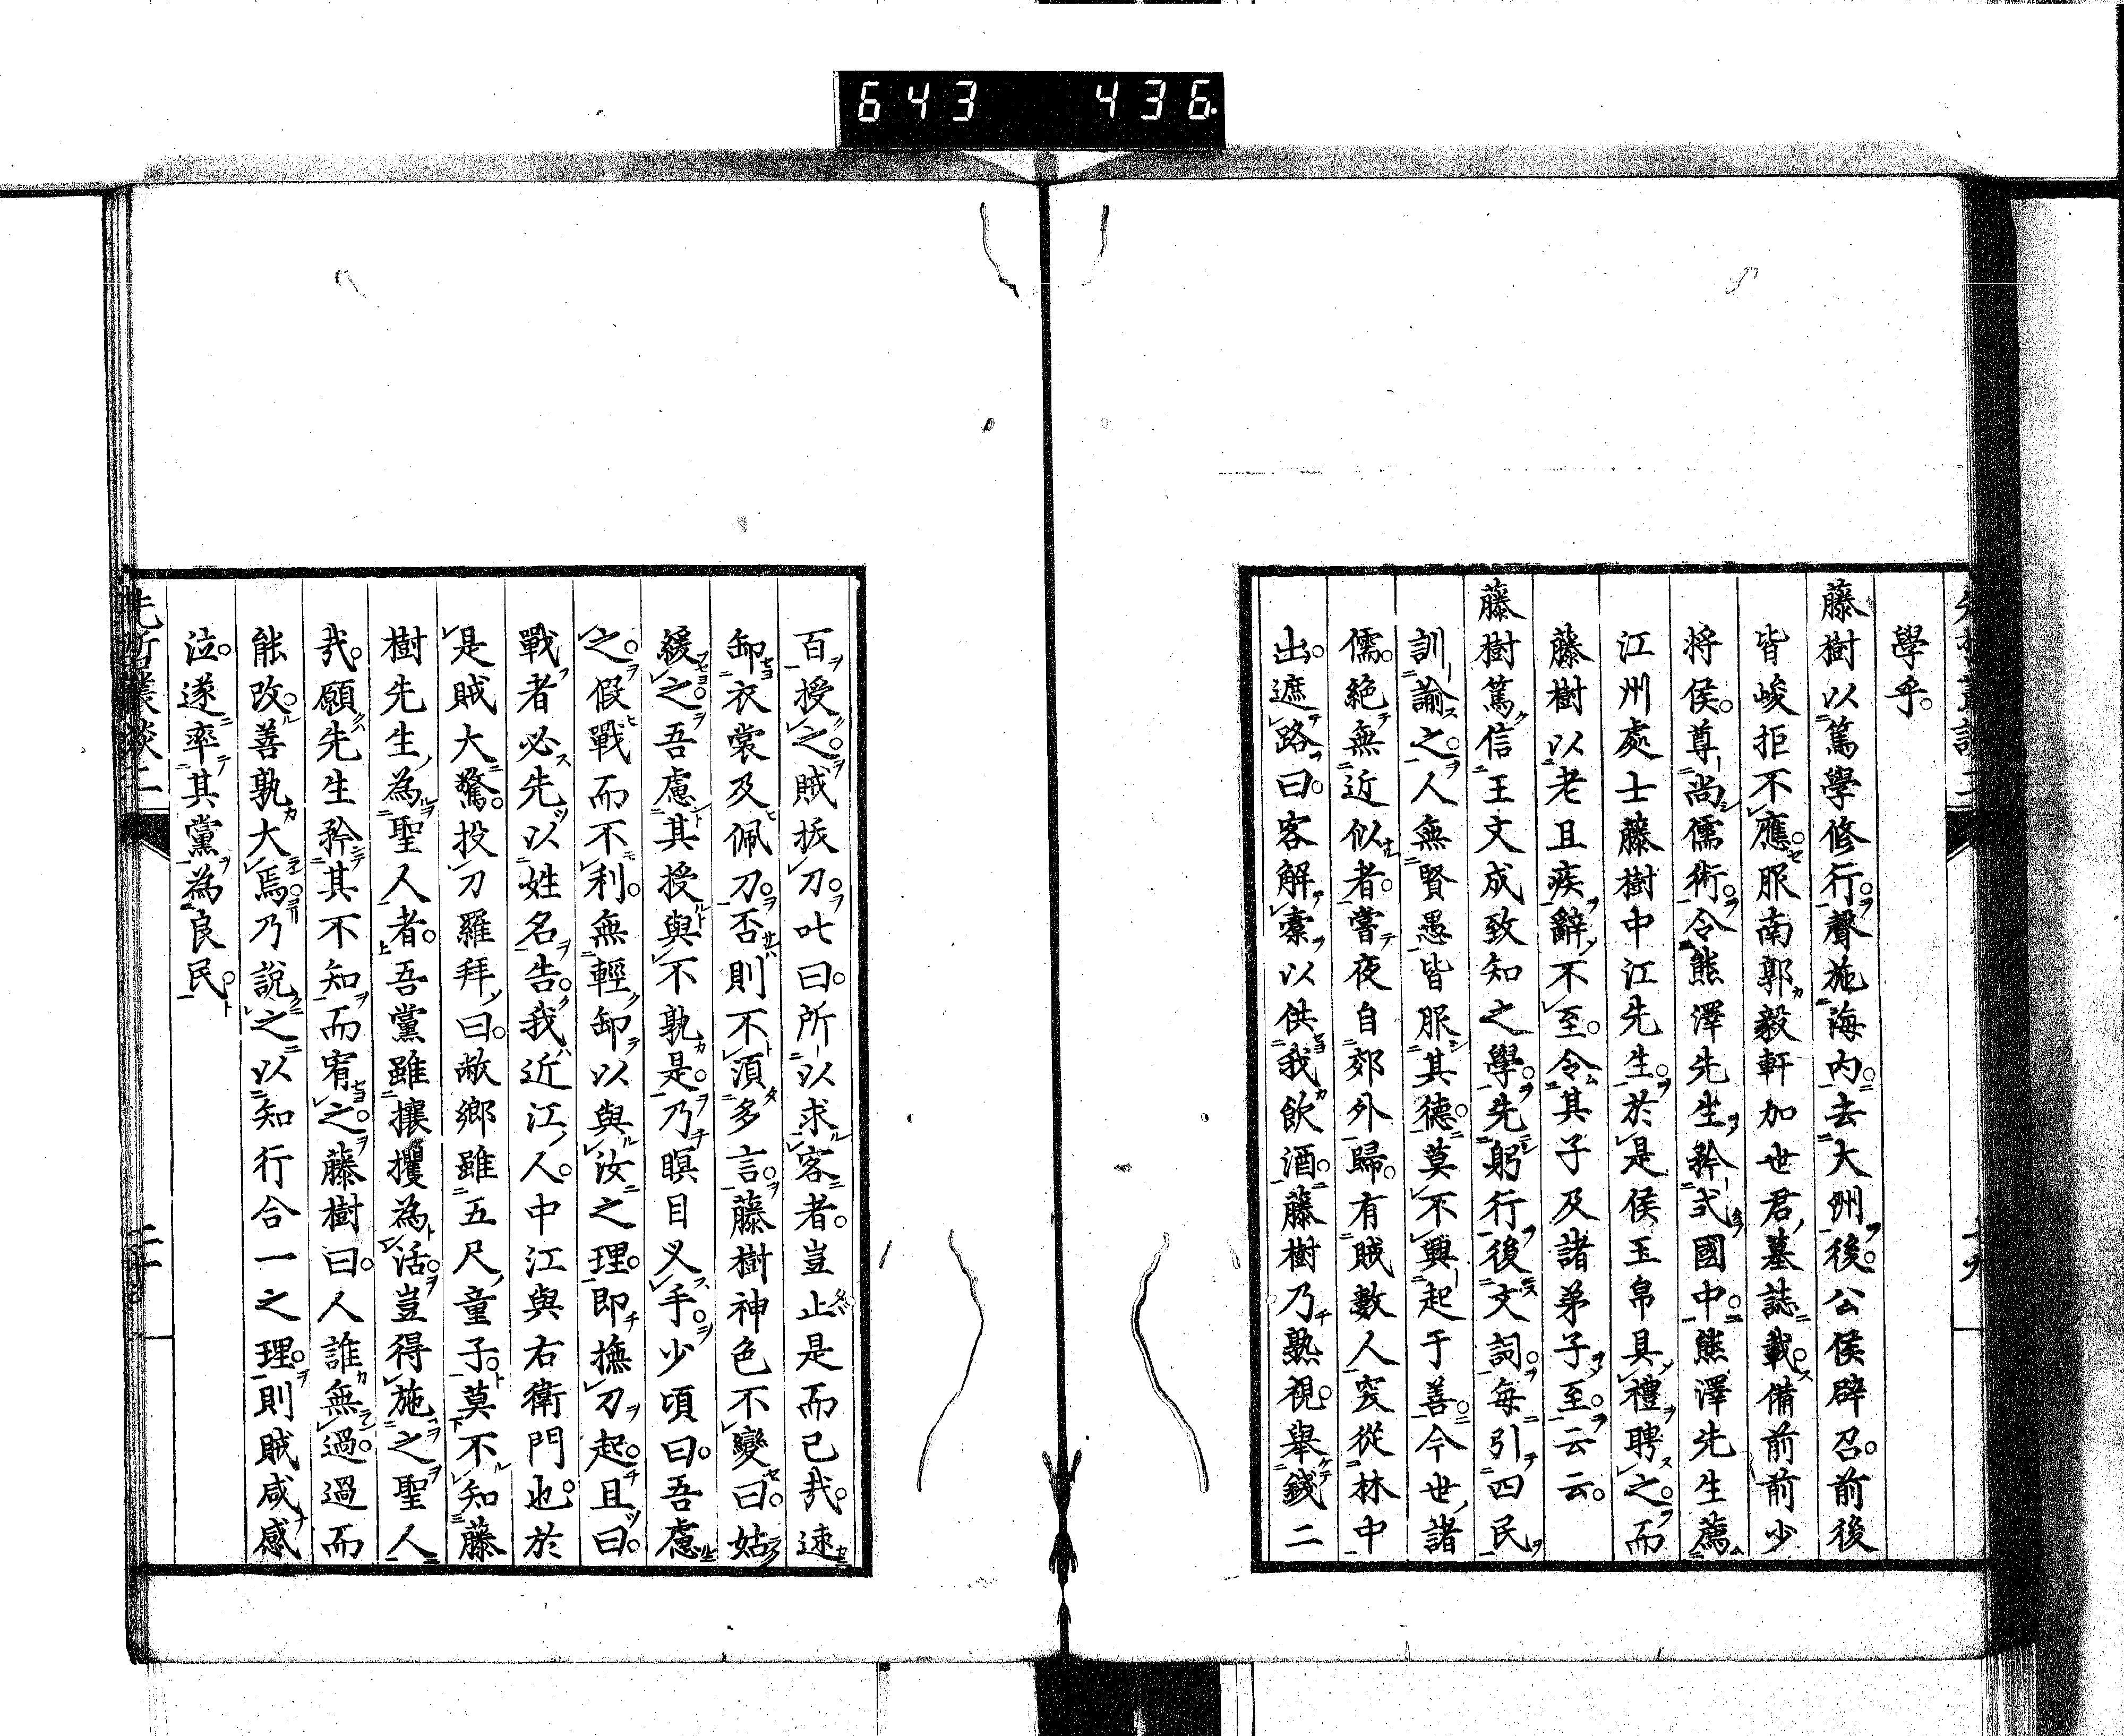 643 436
學乎。
藤樹以篤學修行。聲施海內。去大州後。公侯辟召。前後
皆峻拒不應。服南郭毅軒加世君墓誌載。備前前少
將侯。尊尚儒術。令熊澤先生矜式國中。熊澤先生薦
江州處士藤樹中江先生。於是侯玉帛具禮聘之。而
藤樹以老且疾辭不至。令其子及諸弟子至。云云。
藤樹篤信王文成致知之學。先躬行後文詞。每引四民
訓諭之。人無賢愚皆服其德。莫不興起于善。今世諸
儒。絕無近似者。嘗夜自郊外歸。有賊數人突從林中
出。遮路曰。客解橐以供我飲酒。藤樹乃熟視。舉錢二
百授之。賊拔刀叱曰。所以求客者。豈止是而已哉。速
卸衣裳及佩刀。否則不須多言。藤樹神色不變曰。姑
緩之。吾慮其授與不孰是。乃瞑目叉手。少頃曰。吾慮
之。假戰而不利。無輕卸以與汝之理。即撫刀起。且曰。
戰者必先以姓名告。我近江人。中江與右衛門也。於
是賊大驚。投刀羅拜曰。敝鄉雖五尺童子。莫不知藤
樹先生為聖人者。吾黨雖攘攫為活。豈得施之聖人
哉。願先生矜其不知而宥之。藤樹曰。人誰無過。過而
能改。善孰大焉。乃說之以知行合一之理。則賊咸感
泣。遂率其黨為良民。
先哲叢談二